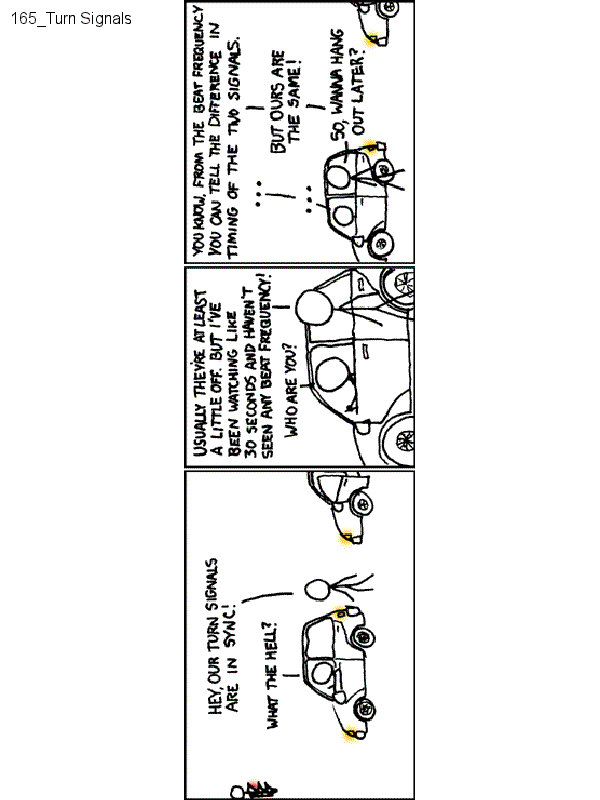 165_Turn Signals
HEY, OUR TURN SIGNALS
ARE IN SYNC!
WHAT THE HELL?
USUALLY THEY'RE AT LEAST
A LITTLE OFF. BUT I'VE
BEEN WATCHING LIKE
30 SECONDS AND HAVEN'T
SEEN ANY BEAT FREQUENCY!
WHO ARE YOU?
YOU KNOW, FROM THE BEAT FREQUENCY
YOU CAN TELL THE DIFFERENCE IN
TIMING OF THE TWO SIGNALS.
...
BUT OURS ARE
THE SAME!
...
SO, WANNA HANG
OUT LATER?